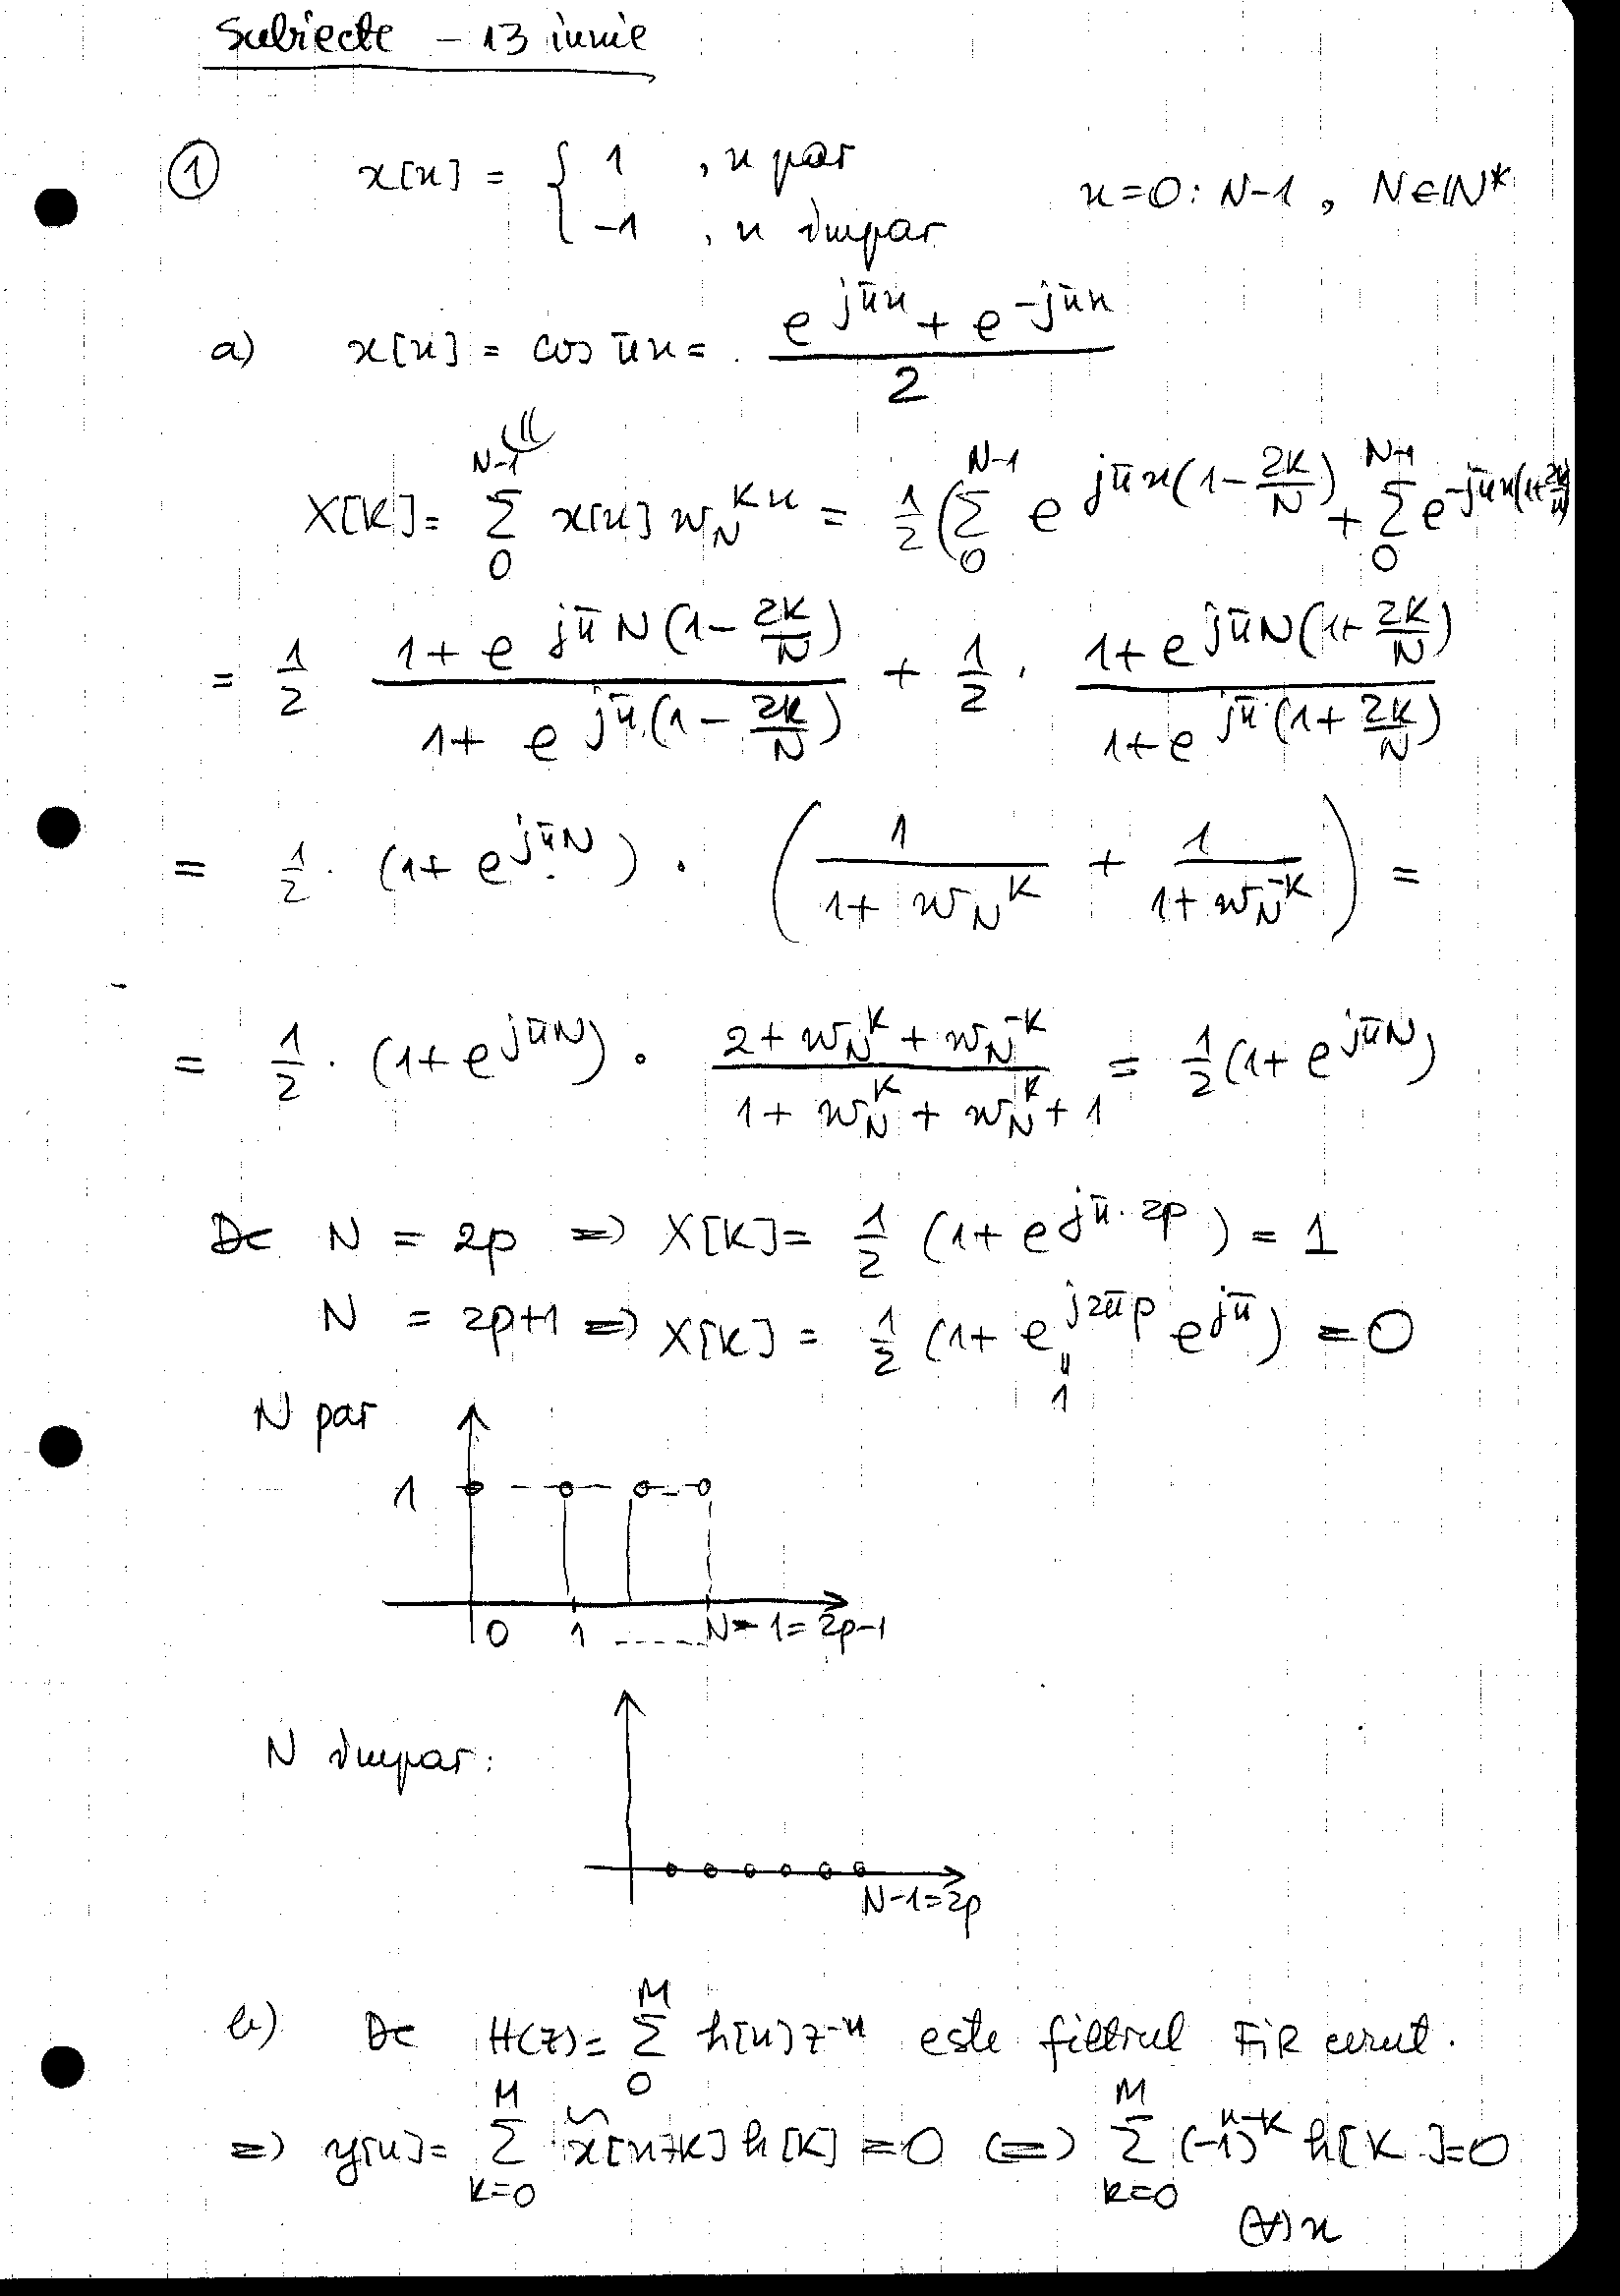 Subiecte - 13 iunie
① x[n] = { 1 , n par
-1 , n impar
n=0:N-1 , N∈ℕ*
a) x[n] = cos πn = (e^{jπn} + e^{-jπn}) / 2
X[k] = Σ_0^{N-1} x[n] w_N^{kn} = 1/2 ( Σ_0^{N-1} e^{jπn(1-2k/N)} + Σ_0^{N-1} e^{-jπn(1+2k/N)}
= 1/2 (1+e^{jπN(1-2k/N)}) / (1+e^{jπ(1-2k/N)}) + 1/2 · (1+e^{jπN(1+2k/N)}) / (1+e^{jπ(1+2k/N)})
= 1/2 · (1+e^{jπN}) · ( 1/(1+w_N^k) + 1/(1+w_N^{-k}) ) =
= 1/2 · (1+e^{jπN}) · (2+w_N^k+w_N^{-k}) / (1+w_N^k+w_N^k+1) = 1/2 (1+e^{jπN})
Dc N = 2p => X[k] = 1/2 (1+e^{jπ·2p}) = 1
N = 2p+1 => X[k] = 1/2 (1+e^{j2πp} e^{jπ}) = 0
"
1
N par
1
0 1 ------ N-1=2p-1
N impar:
N-1=2p
b) Dc H(z) = Σ_0^M h[n] z^{-n} este filtrul FiR cerut.
=> y[n] = Σ_{k=0}^M x̃[n-k] h[k] = 0 (=) Σ_{k=0}^M (-1)^{n-k} h[k] = 0
(∀) n